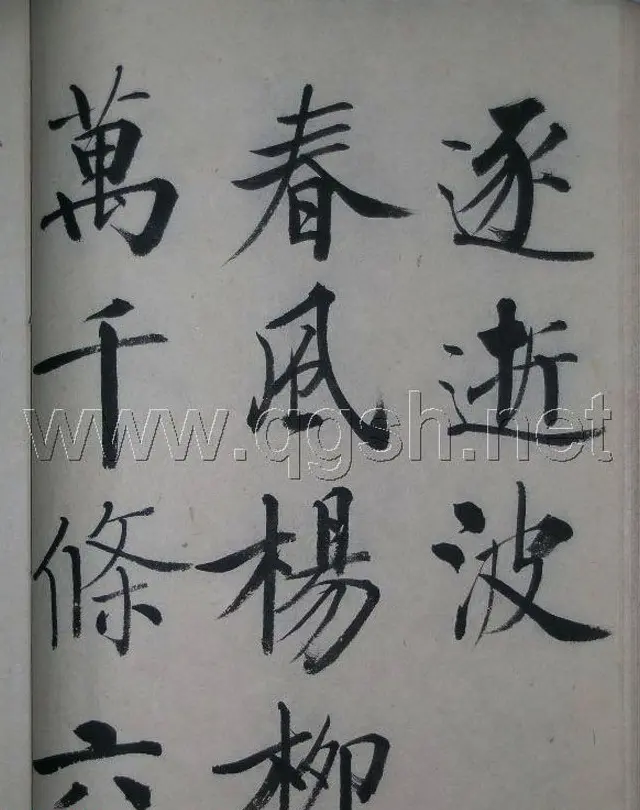 逐逝波
春風楊柳
萬千條六
www.qgsh.net